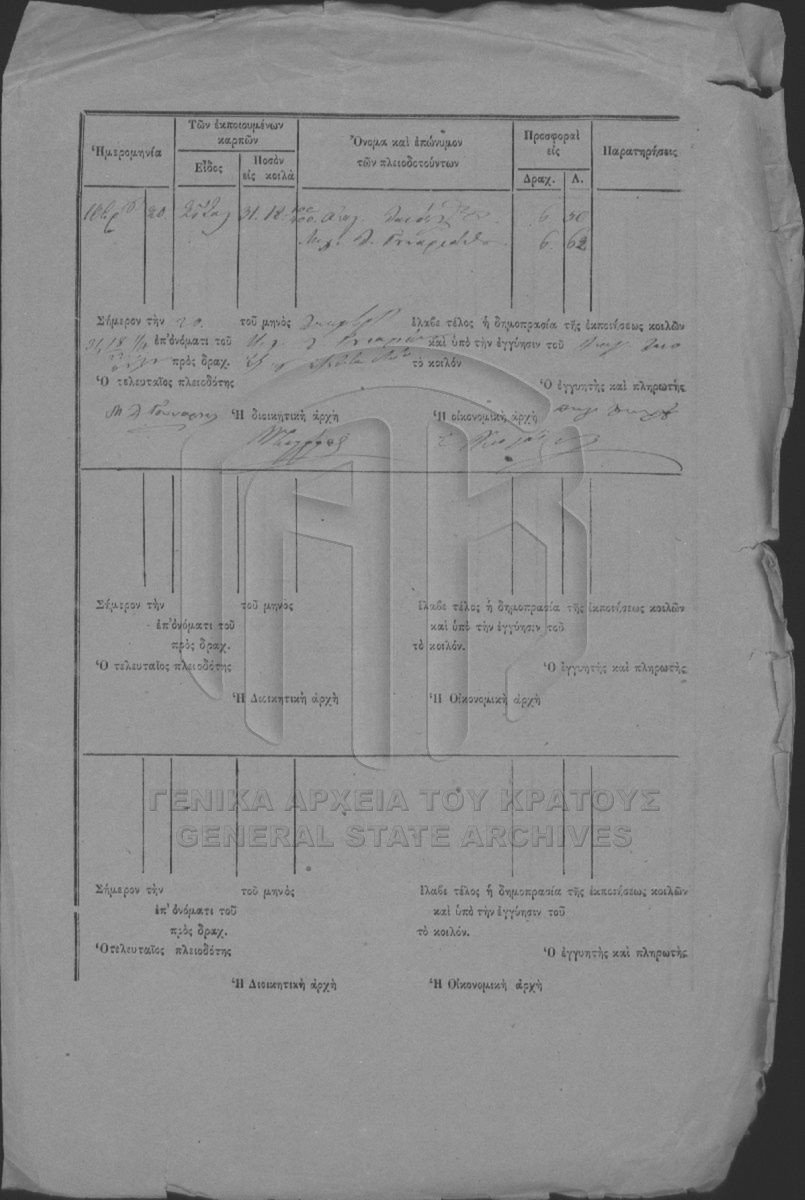 Ἡμερομηνία
Τῶν ἐκποιουμένων
καρπῶν
Εἶδος
Ποσὸν
εἰς κοιλὰ
Ὄνομα καὶ ἐπώνυμον
τῶν πλειοδοτούντων
Προσφοραὶ
εἰς
Δραχ. Λ.
Παρατηρήσεις
20. 31. 18 6 50
6. 62
Σήμερον τὴν 20. τοῦ μηνὸς ἔλαβε τέλος ἡ δημοπρασία τῆς ἐκποιήσεως κοιλῶν
31, 18 ἐπ' ὀνόματι τοῦ καὶ ὑπὸ τὴν ἐγγύησιν τοῦ
πρὸς δραχ. τὸ κοιλόν
Ὁ τελευταῖος πλειοδότης Ὁ ἐγγυητὴς καὶ πληρωτής
Ἡ διοικητικὴ ἀρχὴ Ἡ οἰκονομικὴ ἀρχὴ
Σήμερον τὴν τοῦ μηνὸς ἔλαβε τέλος ἡ δημοπρασία τῆς ἐκποιήσεως κοιλῶν
ἐπ' ὀνόματι τοῦ καὶ ὑπὸ τὴν ἐγγύησιν τοῦ
πρὸς δραχ. τὸ κοιλόν.
Ὁ τελευταῖος πλειοδότης Ὁ ἐγγυητὴς καὶ πληρωτὴς
Ἡ Διοικητικὴ ἀρχὴ Ἡ Οἰκονομικὴ ἀρχὴ
ΓΕΝΙΚΑ ΑΡΧΕΙΑ ΤΟΥ ΚΡΑΤΟΥΣ
GENERAL STATE ARCHIVES
Σήμερον τὴν τοῦ μηνὸς ἔλαβε τέλος ἡ δημοπρασία τῆς ἐκποιήσεως κοιλῶν
ἐπ' ὀνόματι τοῦ καὶ ὑπὸ τὴν ἐγγύησιν τοῦ
πρὸς δραχ. τὸ κοιλόν.
Ὁ τελευταῖος πλειοδότης Ὁ ἐγγυητὴς καὶ πληρωτὴς
Ἡ Διοικητικὴ ἀρχὴ Ἡ Οἰκονομικὴ ἀρχὴ